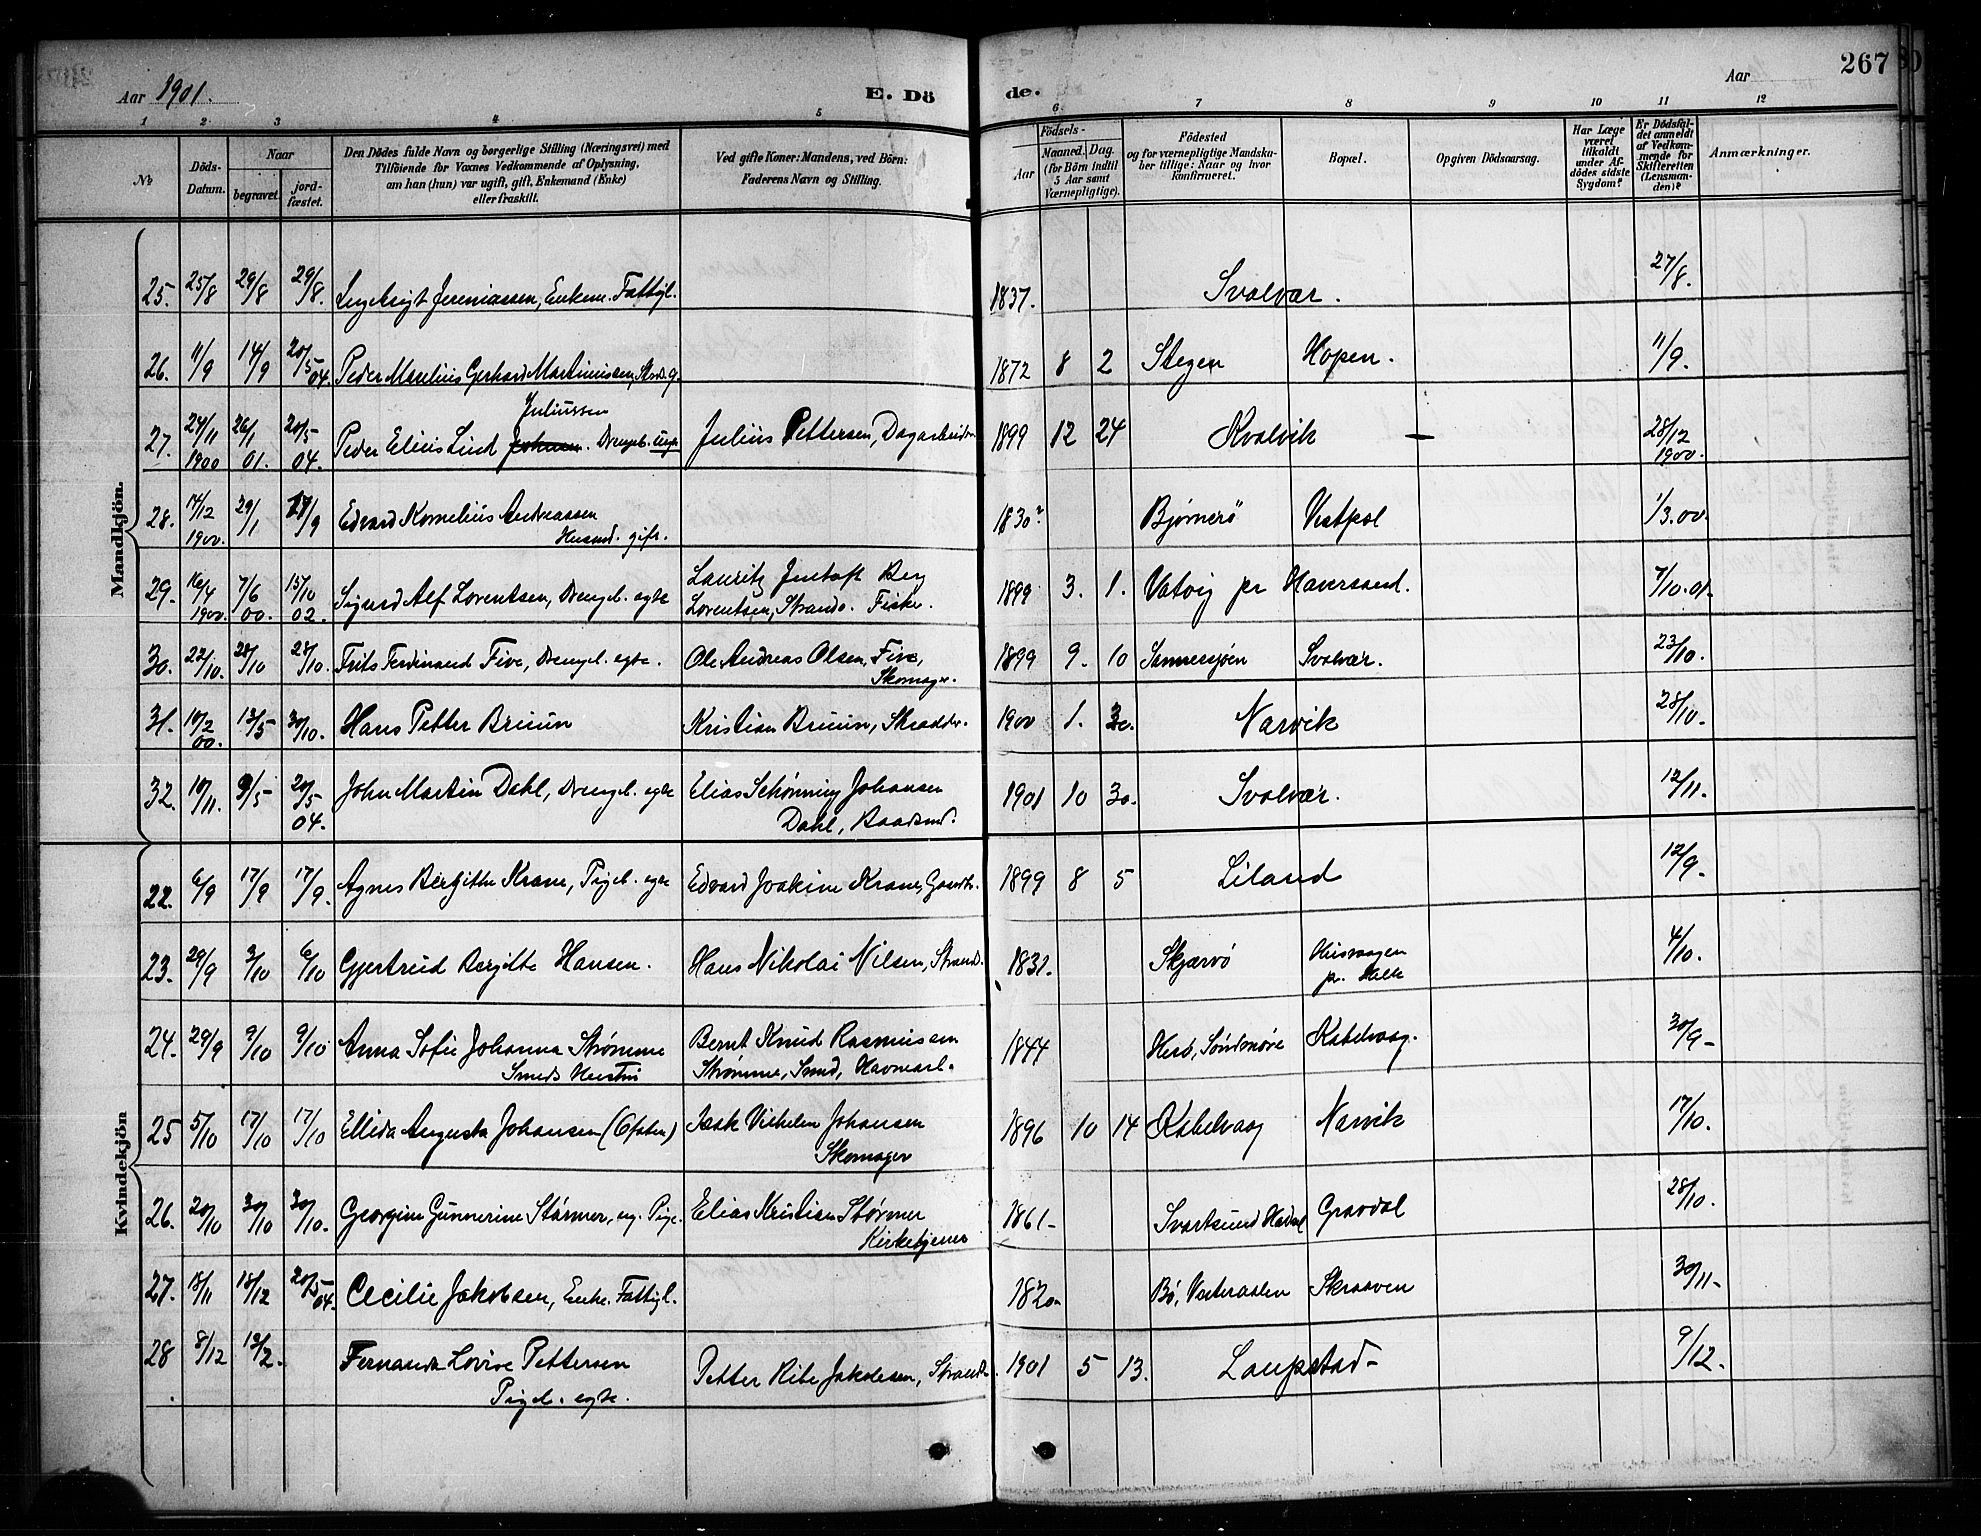 Aar 1901.
E. Dö de.
Aar
267
1 2 3 4 5 6 7 8 9 10 11 12
№
Döds-Datum.
Naar
begravet. jord-fæstet.
Den Dödes fulde Navn og borgerlige Stilling (Næringsvei) med
Tilföiende for Voxnes Vedkommende af Oplysning,
om han (hun) var ugift, gift, Enkemand (Enke)
eller fraskilt.
Ved gifte Koner: Mandens, ved Börn:
Faderens Navn og Stilling.
Födsels-
Aar Maaned. Dag.
(for Börn indtil
5 Aar samt
Værnepligtige).
Födested
og for værnepligtige Mandska-
ber tillige: Naar og hvor
konfirmeret.
Bopæl.
Opgiven Dödsaarsag.
Har Læge
været
tilkaldt
under Af-
dödes sidste
Sygdom?
Er Dödsfal-
det anmeldt
af Vedkom-
mende for
Skifteretten
(Lensman-
den)?
Anmærkninger.
Mandkjön.
25. 25/8 29/8 29/8. Jeremiassen, Enkem. Fattigl. 1837. Svolvær. 27/8.
26. 11/9 14/9 20/5 04. Peder Marelius Gerhard Martinussen, 1872 8 2 Stegen Hopen. 11/9.
Juliussen
27. 24/11 1900 26/1 01. 20/5 04. Peder Elius Lind Johnsen. Drengeb. Julius Pettersen, Dagarbeider 1899 12 24 Kvalvik — 28/12 1900.
28. 14/12 1900. 29/1 17/9 Edvard Kornelius Andreassen
Husmd. gift. 1830? Bjørnerö Vestpol 1/3.00.
29. 16/4 1900. 7/6 00. 15/10 02. Sigurd Alf Lorentsen, Drengeb. egte Lauritz Jentoft Berg
Lorentsen, Strands. Fisker. 1899 3. 1. Vatvig pr Haversand. 7/10.01.
30. 22/10. 28/10 28/10. Frits Ferdinand Five, Drengeb. egte. Ole Andreas Olsen, Five,
Skomager. 1899 9. 10 Sannessjøen Svolvær. 23/10.
31. 10/2 00. 13/5 30/10. Hans Petter Bruun Kristian Bruun, Skrædder. 1900 1. 30. Narvik 28/10.
32. 10/11. 9/5 20/5 04. John Martin Dahl, Drengeb. egte Elias Schønning Johansen
Dahl, Baadsmd. 1901 10 30. Svolvær. 12/11.
Kvindekjön
22. 6/9 17/9 17/9. Agnes Bergitte Krane, Pigeb. egte Edvard Joakim Krane, Gaardb. 1899 8 5 Liland 12/9.
23. 29/9 2/10 6/10 Gjertrud Bergitte Hansen. Hans Nikolai Nilsen, Strands. 1831. Skjærvö Husvaagen
pr. Helle 4/10.
24. 29/9 9/10 9/10 Anna Sofie Johanna Strømme
Smeds Hustru Bernt Knud Rasmussen
Strømme, Smed, Havnearb. 1844 Herö, Söndmöre Kabelvaag. 30/9
25 5/10 17/10 17/10 Ellida Augusta Johansen (Ofoten) Isak Vilhelm Johansen
Skomager 1896 10 14 Kabelvaag Narvik 17/10.
26. 20/10 30/10 30/10. Georgine Gunnerine Størmer, ug. Pige. Elias Kristian Størmer
Kirketjener 1861 Svartsund Hadsel Gravdal 28/10.
27. 18/11 18/12 20/5 04. Cecilie Jakobsen, Enke. Fattigl. 1820 Bö, Vesteraalen Skraaven 30/11
28 8/12 12/2. Fernanda Lovise Pettersen
Pigeb. egte. Petter Ribe Jakobsen, Strands. 1901 5 13. Laupstad 9/12.